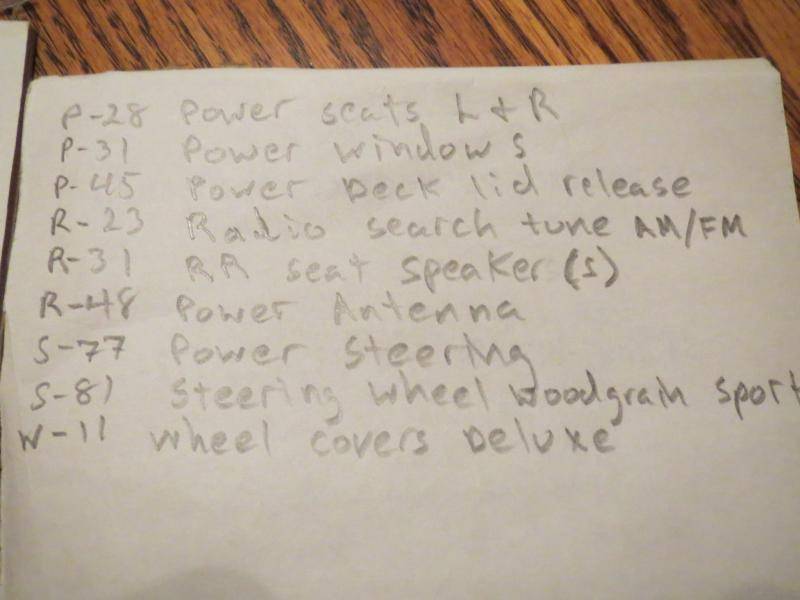 P-28 Power seats L & R
P-31 Power windows
P-45 Power Deck lid release
R-23 Radio search tune AM/FM
R-31 RR seat speaker (s)
R-48 Power Antenna
S-77 Power steering
S-81 Steering wheel woodgrain sport
W-11 Wheel covers Deluxe